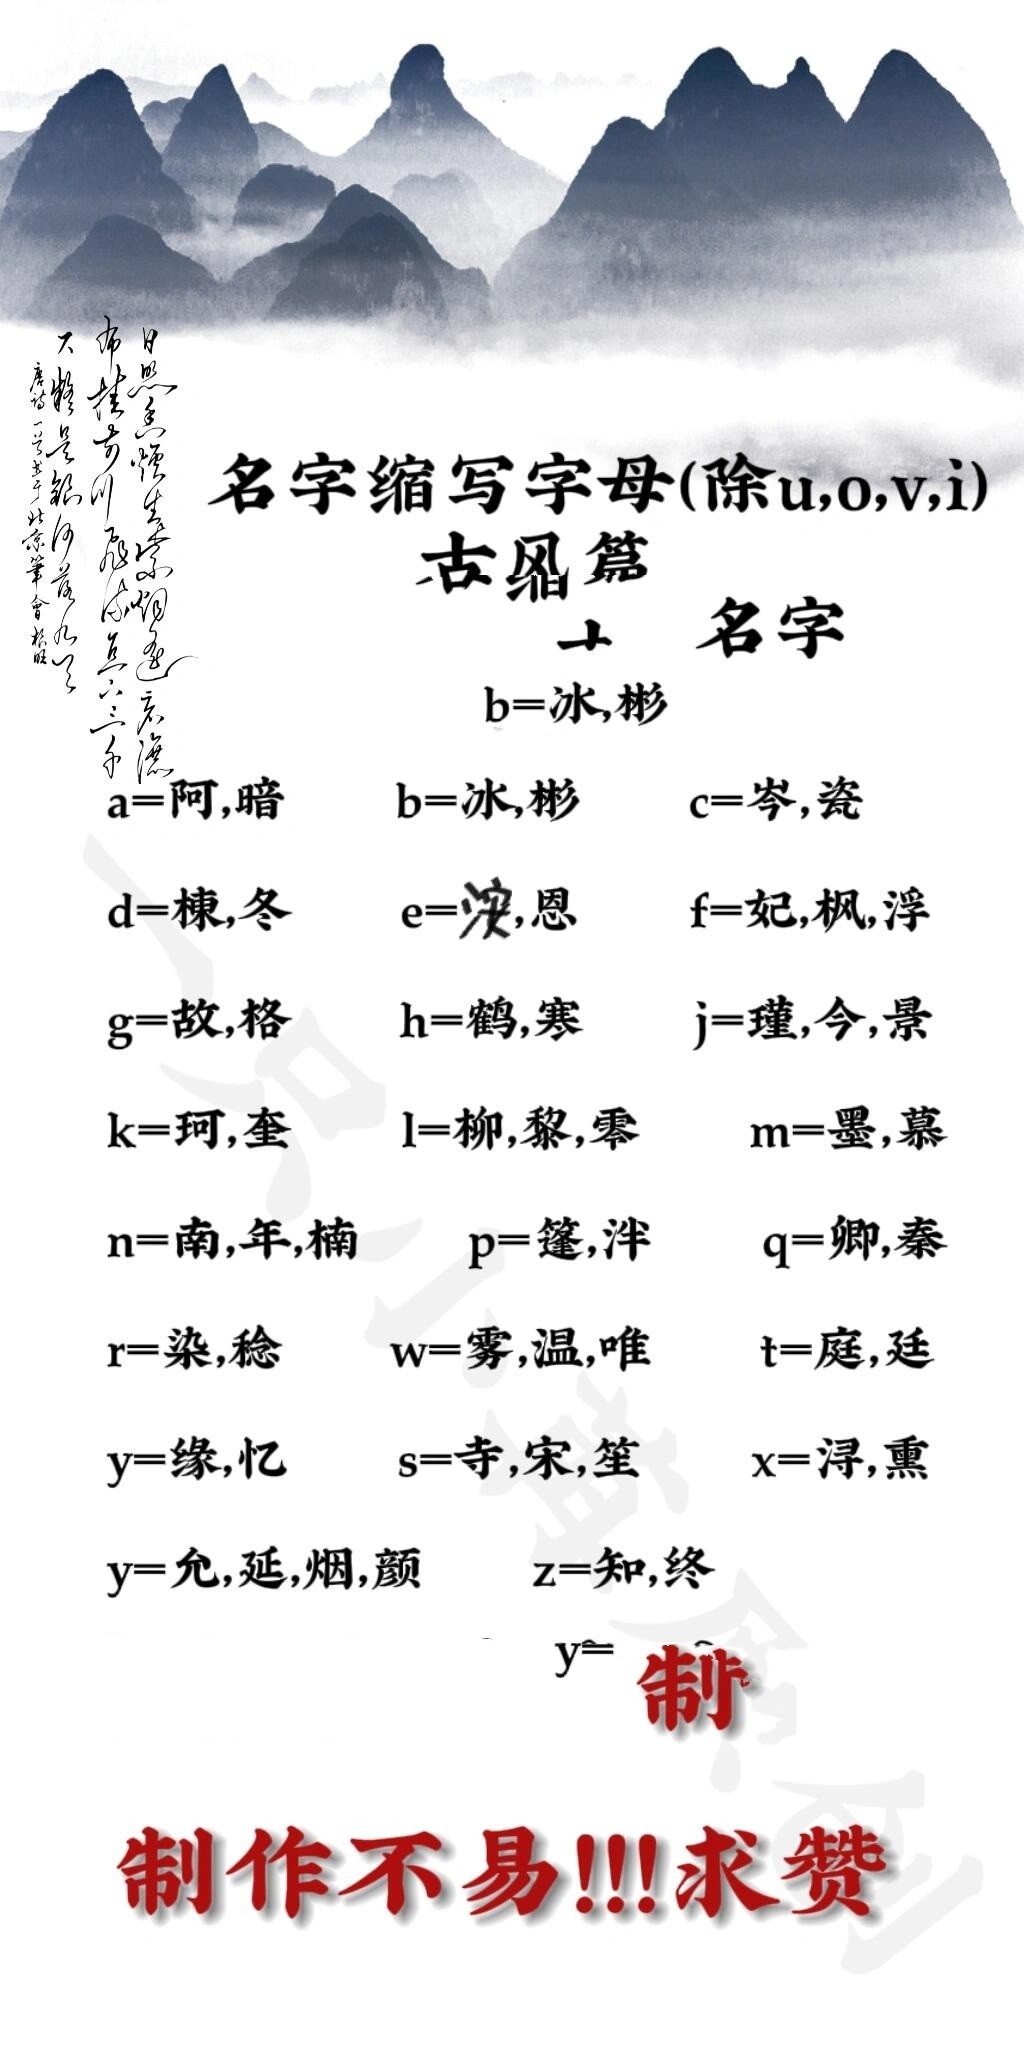 名字缩写字母(除u,o,v,i)
古风篇
名字
b=冰,彬
a=阿,暗 b=冰,彬 c=岑,瓷
d=棟,冬 e= ,恩 f=妃,枫,浮
g=故,格 h=鹤,寒 j=瑾,今,景
k=珂,奎 l=柳,黎,零 m=墨,慕
n=南,年,楠 p=篷,泮 q=卿,秦
r=染,稔 w=雾,温,唯 t=庭,廷
y=缘,忆 s=寺,宋,笙 x=浔,熏
y=允,延,烟,颜 z=知,终
y=
制
制作不易!!!求赞
日照香炉生紫烟遥看瀑
布挂前川飞流直下三千
尺疑是银河落九天
一只小黄原创